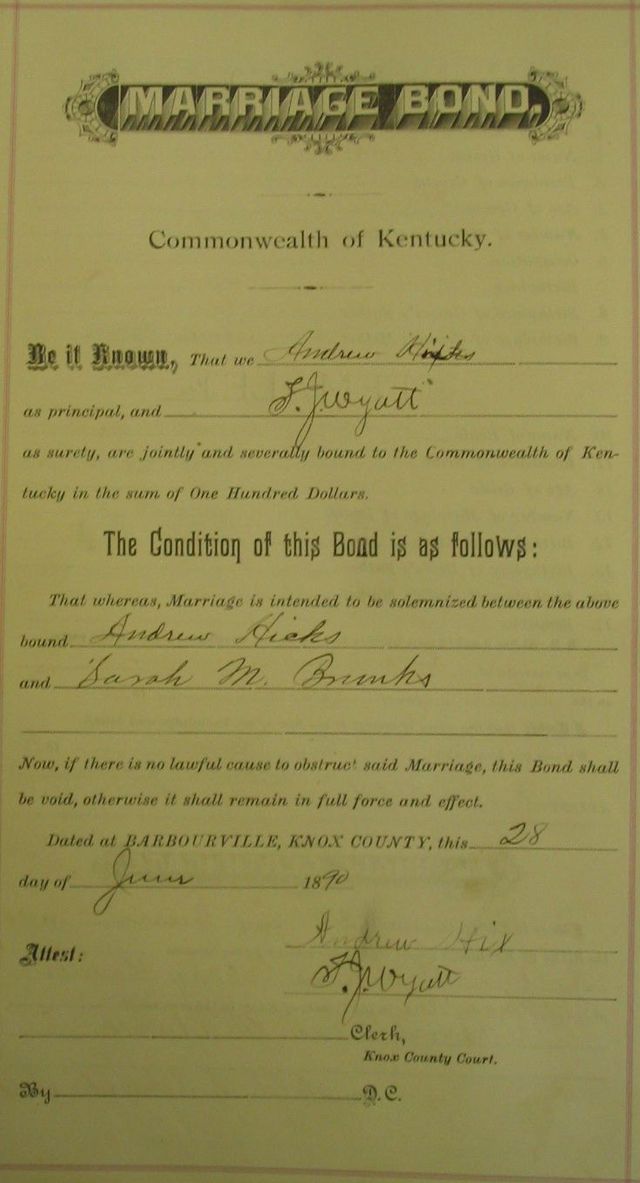 MARRIAGE BOND.
Commonwealth of Kentucky.
Be it Known, That we Andrew Hicks
as principal, and F. J. Wyatt
as surety, are jointly and severally bound to the Commonwealth of Ken-
tucky in the sum of One Hundred Dollars.
The Condition of this Bond is as follows:
That whereas, Marriage is intended to be solemnized between the above
bound Andrew Hicks
and Sarah M.
Now, if there is no lawful cause to obstruct said Marriage, this Bond shall
be void, otherwise it shall remain in full force and effect.
Dated at BARBOURVILLE, KNOX COUNTY, this 28
day of June 1890
Andrew Hix
Attest:
F. J. Wyatt
Clerk,
Knox County Court.
By D. C.